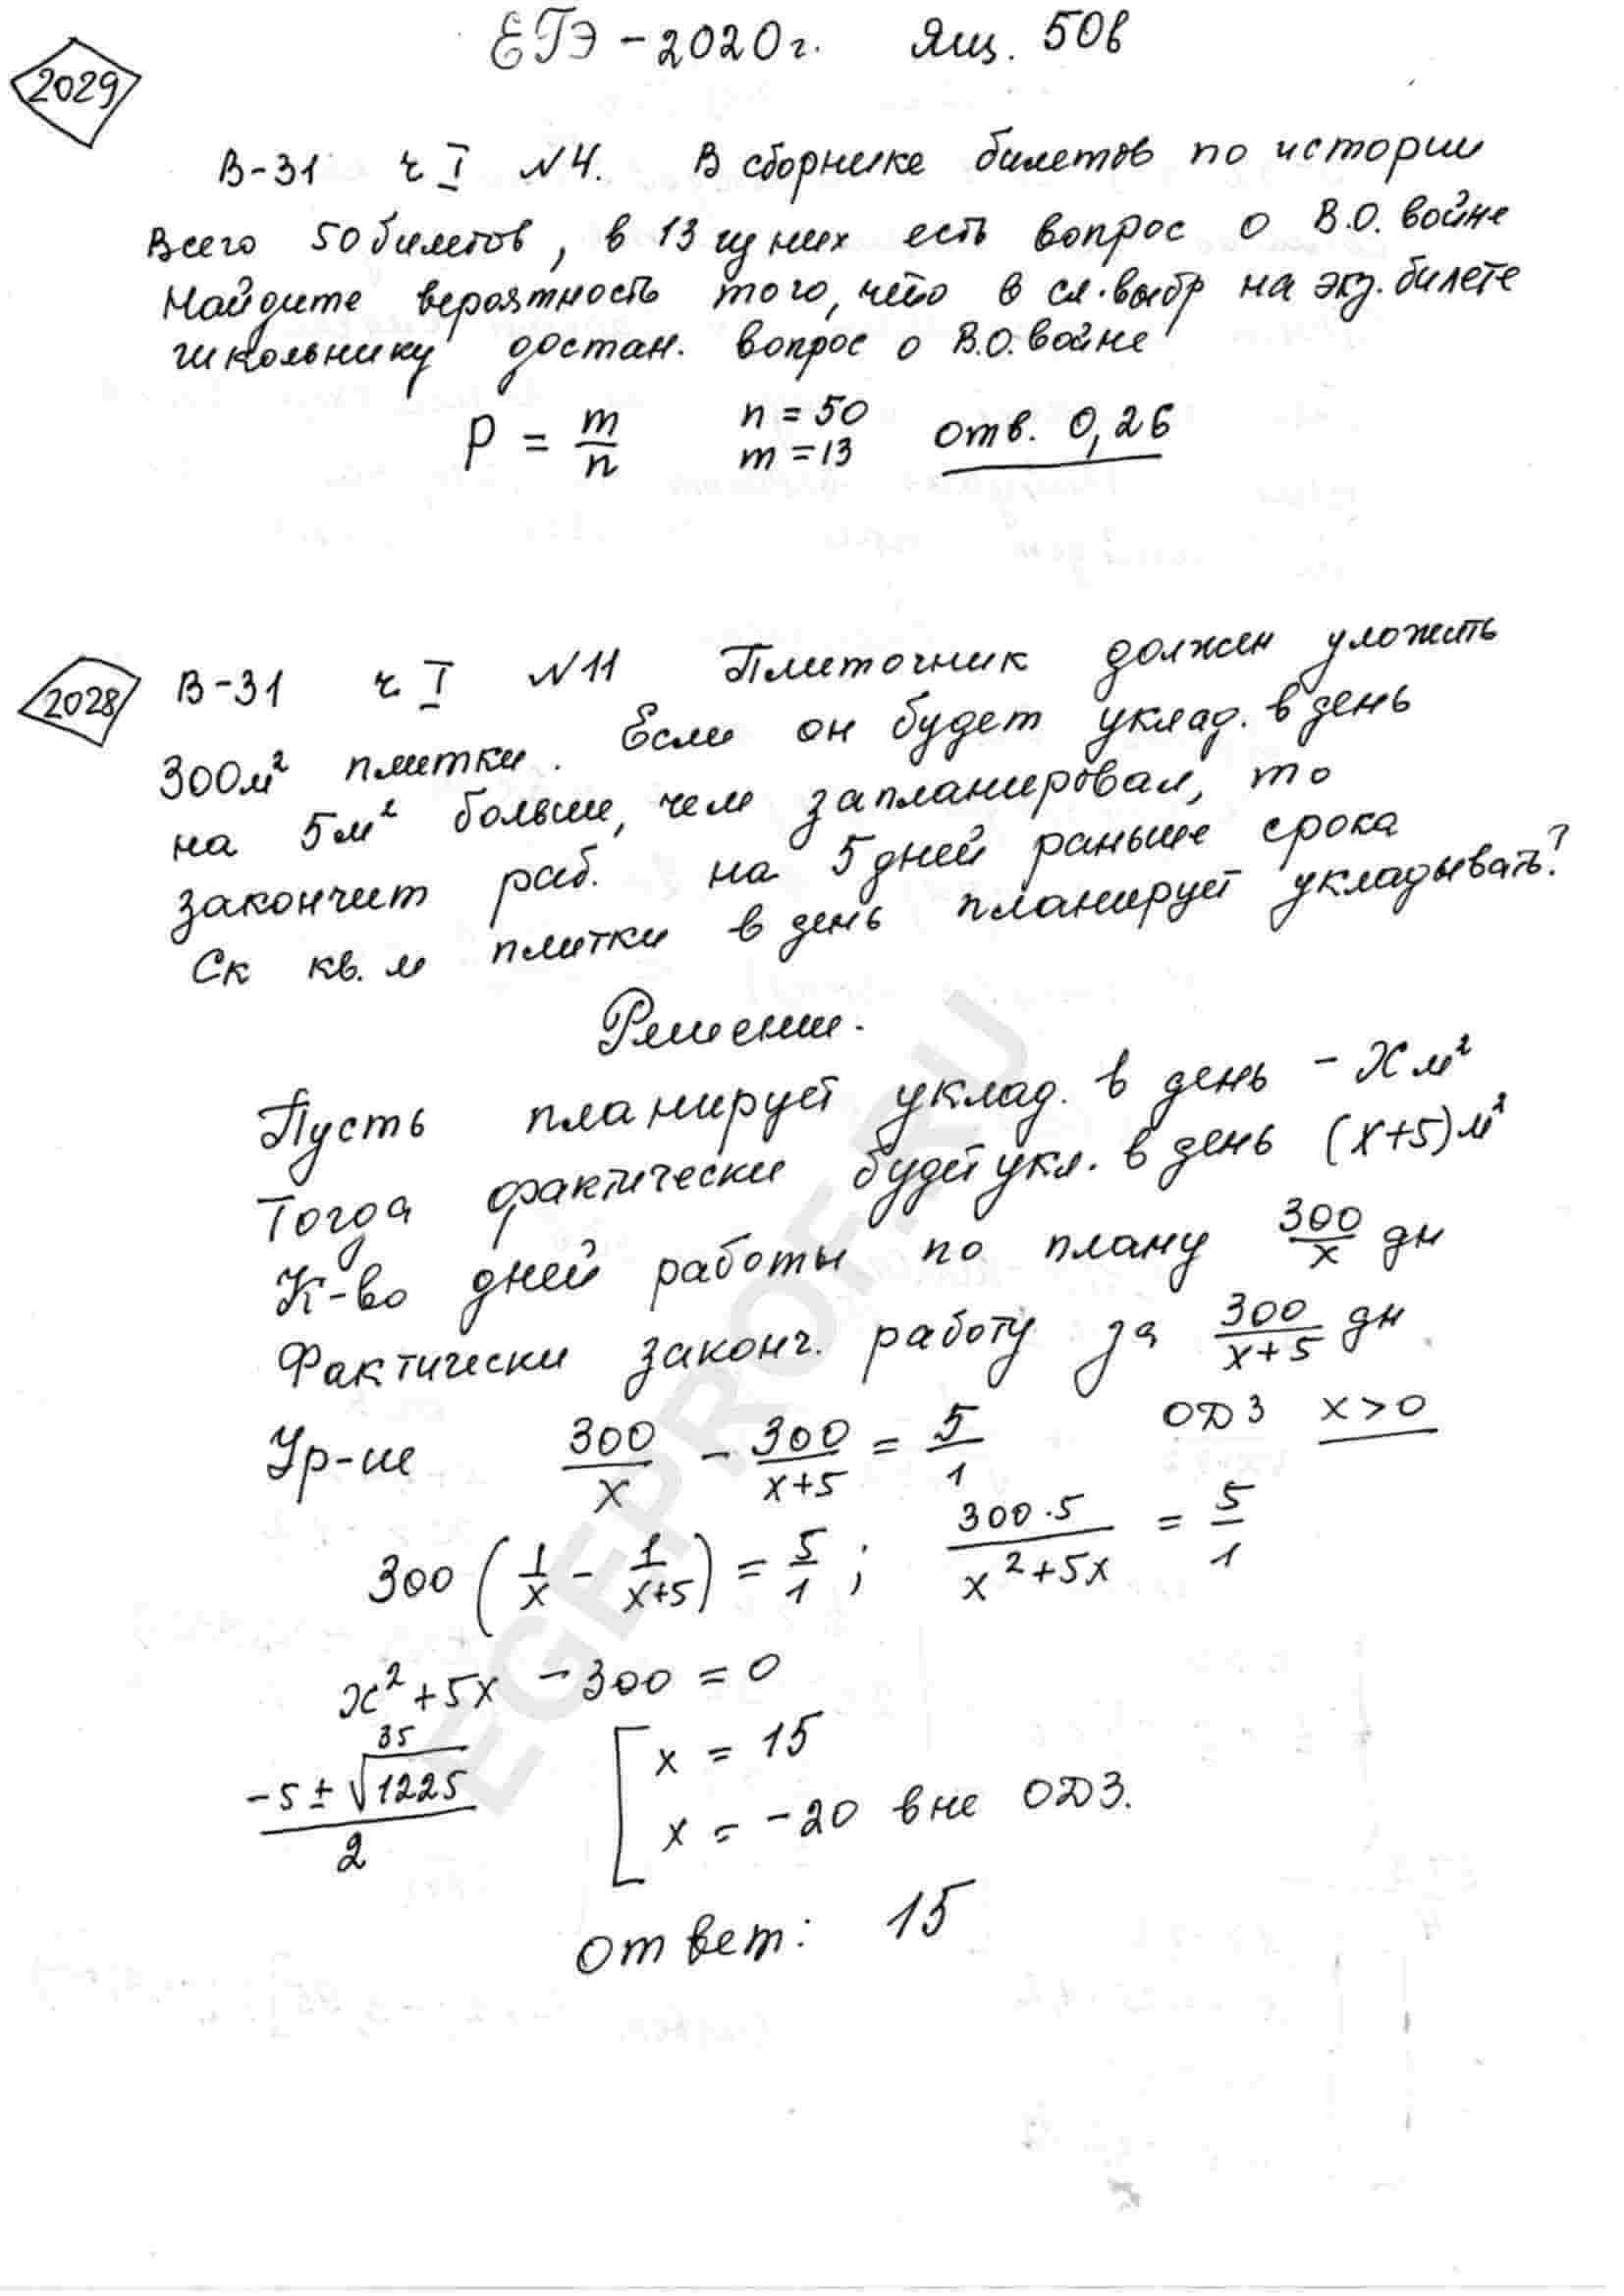 ЕГЭ-2020г. Ящ. 50в
2029
В-31 ч I №4. В сборнике билетов по истории
Всего 50 билетов, в 13 из них есть вопрос о В.О. войне
Найдите вероятность того, что в сл. выбр на экз. билете
школьнику достан. вопрос о В.О. войне
P = m/n n = 50 m = 13 отв. 0,26
2028
В-31 ч I №11 Плиточник должен уложить
300м² плитки. Если он будет уклад. в день
на 5м² больше, чем запланировал, то
закончит раб. на 5 дней раньше срока
Ск кв. м плитки в день планирует укладывать?
Решение.
Пусть планирует уклад. в день - x м²
Тогда фактически будет укл. в день (x+5) м²
К-во дней работы по плану 300/x дн
Фактически законч. работу за 300/(x+5) дн
Ур-ие 300/x - 300/(x+5) = 5/1 ОДЗ x>0
300 (1/x - 1/(x+5)) = 5/1 ; 300·5/(x²+5x) = 5/1
x²+5x - 300 = 0
35
(-5 ± √1225)/2 [ x = 15
x = -20 вне ОДЗ.
ответ: 15
EGEPROF.RU